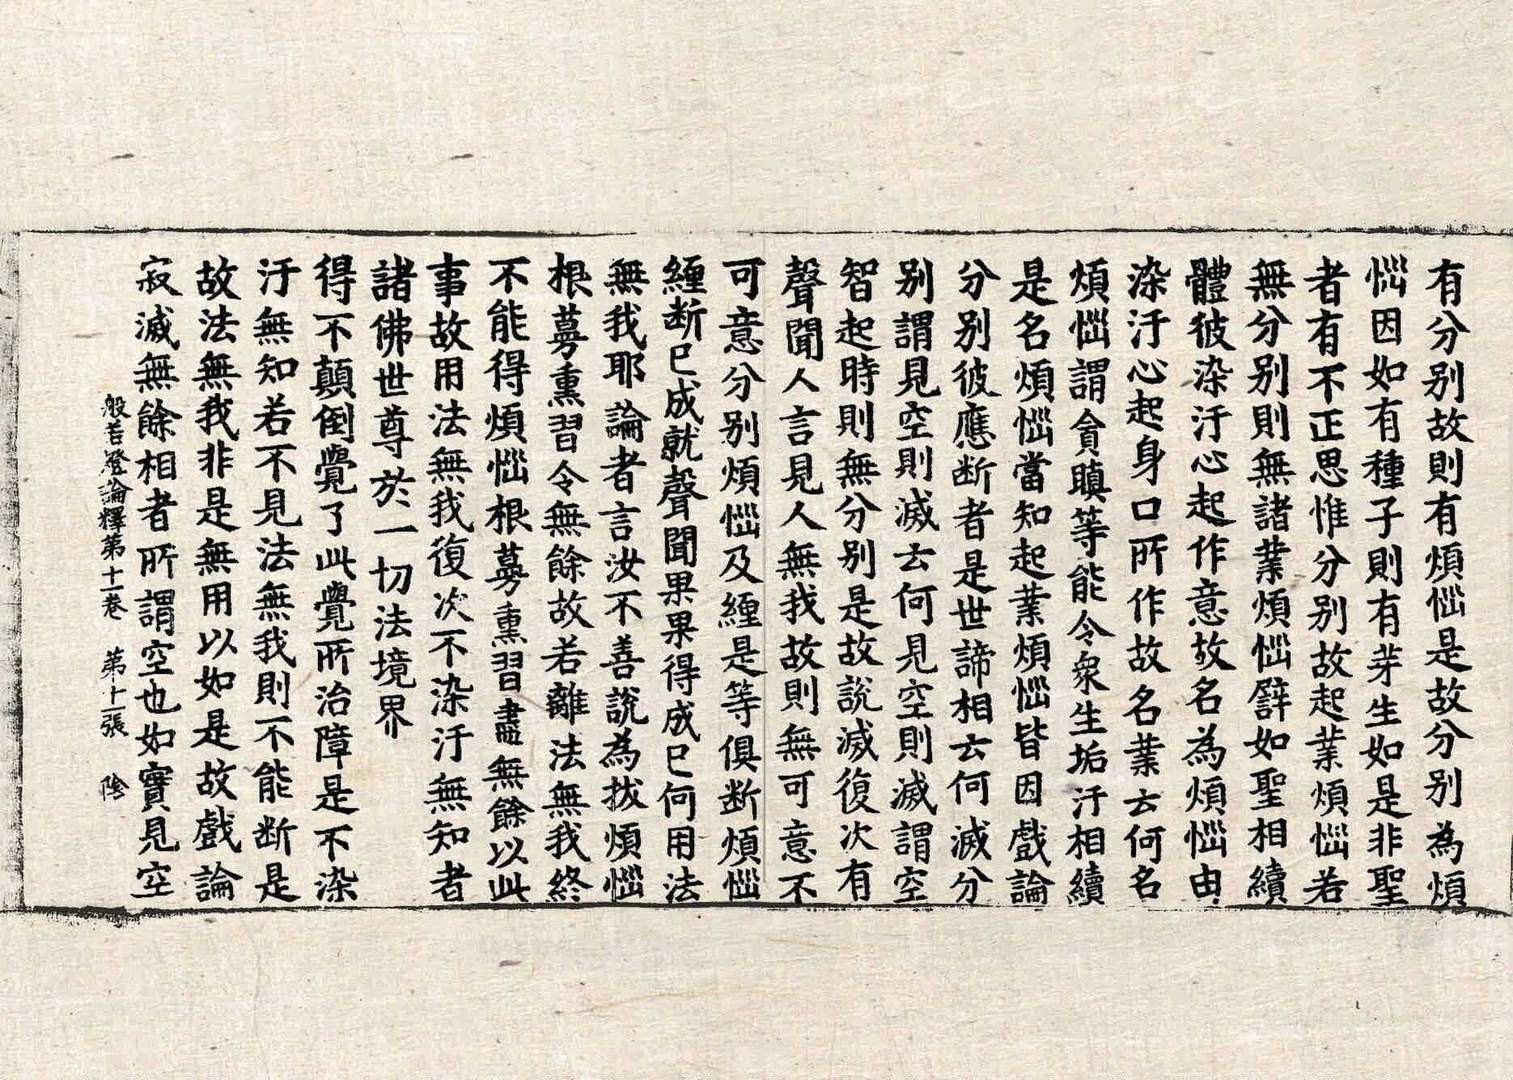 有分别故則有煩惱是故分别為煩
惱因如有種子則有芽生如是非聖
者有不正思惟分别故起業煩惱若
無分别則無諸業煩惱譬如聖相續
體彼染汙心起作意故名為煩惱由
染汙心起身口所作故名業云何名
煩惱謂貪瞋等能令衆生垢汙相續
是名煩惱當知起業煩惱皆因戲論
分别彼應断者是世諦相云何滅分
别謂見空則滅云何見空則滅謂空
智起時則無分别是故說滅復次有
聲聞人言見人無我故則無可意不
可意分别煩惱及纏是等俱断煩惱
纏断已成就聲聞果果得成已何用法
無我耶論者言汝不善說為拔煩惱
根蔓熏習令無餘故若離法無我終
不能得煩惱根蔓熏習盡無餘以此
事故用法無我復次不染汙無知者
諸佛世尊於一切法境界
得不顛倒覺了此覺所治障是不染
汙無知若不見法無我則不能断是
故法無我非是無用以如是故戲論
寂滅無餘相者所謂空也如實見空
般若燈論釋第十一卷　第十一張　陰